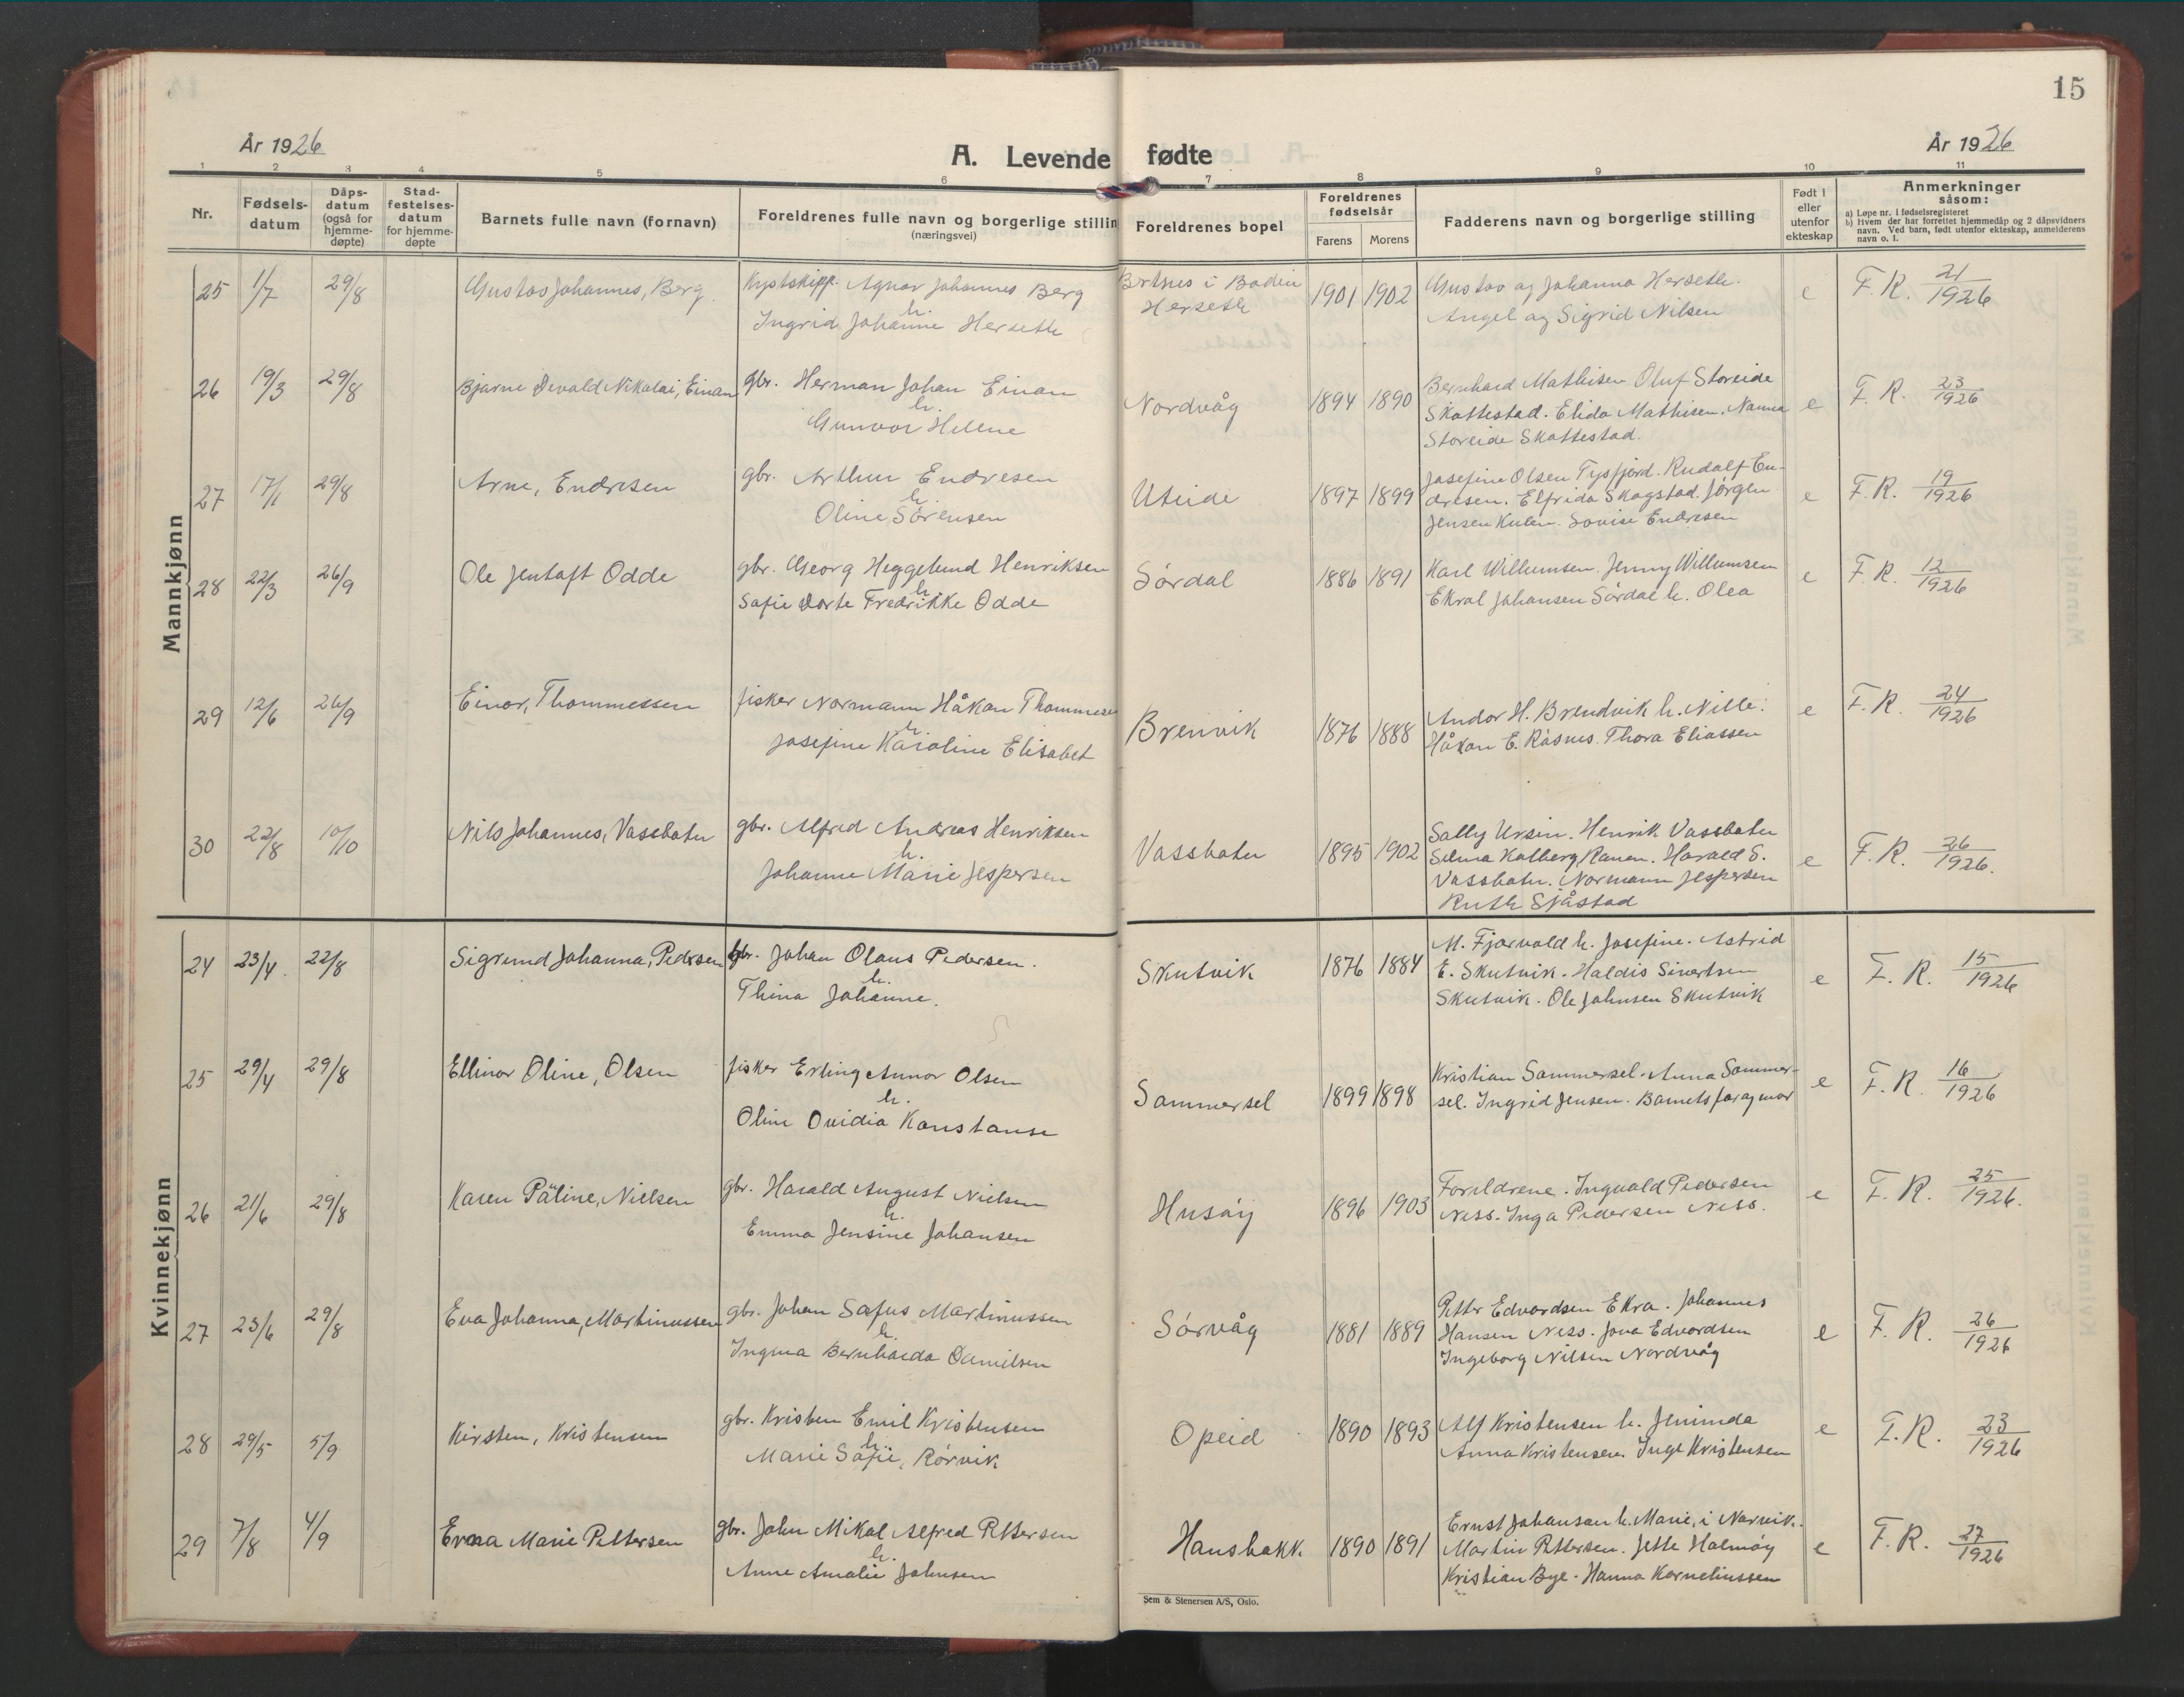 15
År 1926
A. Levende fødte
År 1926
1 2 3 4 5 6 7 8 9 10 11
Nr.
Fødsels-
datum
Dåps-
datum
(også for
hjemme-
døpte)
Stad-
festelses-
datum
for hjemme-
døpte
Barnets fulle navn (fornavn)
Foreldrenes fulle navn og borgerlige stillin
(næringsvei)
Foreldrenes bopel
Foreldrenes
fødselsår
Farens Morens
Fadderens navn og borgerlige stilling
Født i
eller
utenfor
ekteskap
Anmerkninger
såsom:
a) Løpe nr. i fødselsregisteret
b) Hvem der har forrettet hjemmedåp og 2 dåpsvidners
navn. Ved barn, født utenfor ekteskap, anmelderens
navn o. l.
Mannkjønn
25 1/7 29/8 Gustav Johannes, Berg.
Kystskipp. Agnar Johannes Berg
h.
Ingrid Johanne Herseth
Bertnes i Bodin
Herseth
1901 1902
Gustav og Johanna Herseth.
Angel og Sigrid Nilsen
e F. R. 21/1926
26 19/3 29/8 Bjarne Devald Nikolai, Einan
gbr. Herman Johan Einan
h.
Gunvor Helene
Nordvåg
1894 1890
Bernhard Mathisen Oluf Storeide
Skottestad. Elida Mathisen. Nanna
Storeide Skottestad.
e F. R. 23/1926
27 17/1 29/8 Arne, Endresen
gbr. Arthur Endresen
h.
Oline Sörensen
Uteide
1897 1899
Josefine Olsen Tysfjord. Rudolf En-
dresen. Elfrida Skogstad. Jörgen
Jensen Kulen. Lovise Endresen
e F. R. 19/1926
28 22/3 26/9 Ole Jentoft Odde
gbr. Georg Heggelund Henriksen
h.
Sofie Dorte Fredrikke Odde
Sördal
1886 1891
Karl Willumsen. Jenny Willumsen
Ekral Johansen Sördal h. Olea
e F. R. 12/1926
29 12/6 26/9 Einar, Thommessen
fisker Normann Håkon Thommese
h.
Josefine Karoline Elisabet
Brenvik
1876 1888
Andor H. Brendvik h. Nille.
Håkon E. Råsnes. Thora Eliassen
e F. R. 24/1926
30 22/8 10/10 Nils Johannes, Vassbotn
gbr. Alfred Andreas Henriksen
h.
Johanne Marie Jespersen
Vassbotn
1895 1902
Sally Ursin. Henrik Vassbotn
Selma Kolberg, Ranen. Harald S.
Vassbotn. Normann Jespersen
Ruth Sjåstad
e F. R. 26/1926.
Kvinnekjønn
24 23/4. 22/8 Sigrund Johanna, Pedersen
gbr. Johan Olaus Pedersen.
h.
Thina Johanne.
Skutvik
1876 1884
M. Fjorvold h. Josefine. Astrid
E. Skutvik. Haldis Sivertsen
Skutvik. Ole Johnsen Skutvik
e F. R. 15/1926
25 29/4 29/8 Ellinor Oline, Olsen
fisker Erling Annor Olsen
h.
Oline Ovidia Konstanse
Sommersel
1899 1898
Kristian Sommersel. Anna Sommer-
sel. Ingrid Jensen. Barnets far og mor
e F. R. 16/1926
26 21/6 29/8 Karen Påline, Nielsen
gbr. Harald August Nielsen
h.
Emma Jensine Johansen
Husöy
1896 1903
Foreldrene. Ingvald Pedersen
Ness. Inga Pedersen Ness.
e F. R. 25/1926.
27 23/6 29/8 Eva Johanna, Martinussen
gbr. Johan Sofus Martinussen
h.
Ingma Bernharda Danielsen
Sörvåg
1881 1889
Petter Edvardsen Ekra. Johannes
Hansen Ness. Jova Edvardsen
Ingeborg Nilsen Nordvåg
e F. R. 26/1926
28 29/5 5/9 Kirsten, Kristensen
gbr. Kristen Emil Kristensen
h.
Marie Sofie, Rörvik
Opeid
1890 1893
Alf Kristensen h. Jenimda
Anna Kristensen. Inge Kristensen
e F. R. 23/1926
29 7/8 4/9 Erna Marie Pettersen
gbr. John Mikal Alfred Pettersen
h.
Anne Amalie Johnsen
Hansbakk.
1890 1891
Ernst Johansan h. Marie, i Narvik.
Martin Pettersen. Jette Holmöy
Kristian Bye. Hanna Kornelinssen
e F. R. 27/1926
Sem & Stenersen A/S, Oslo.